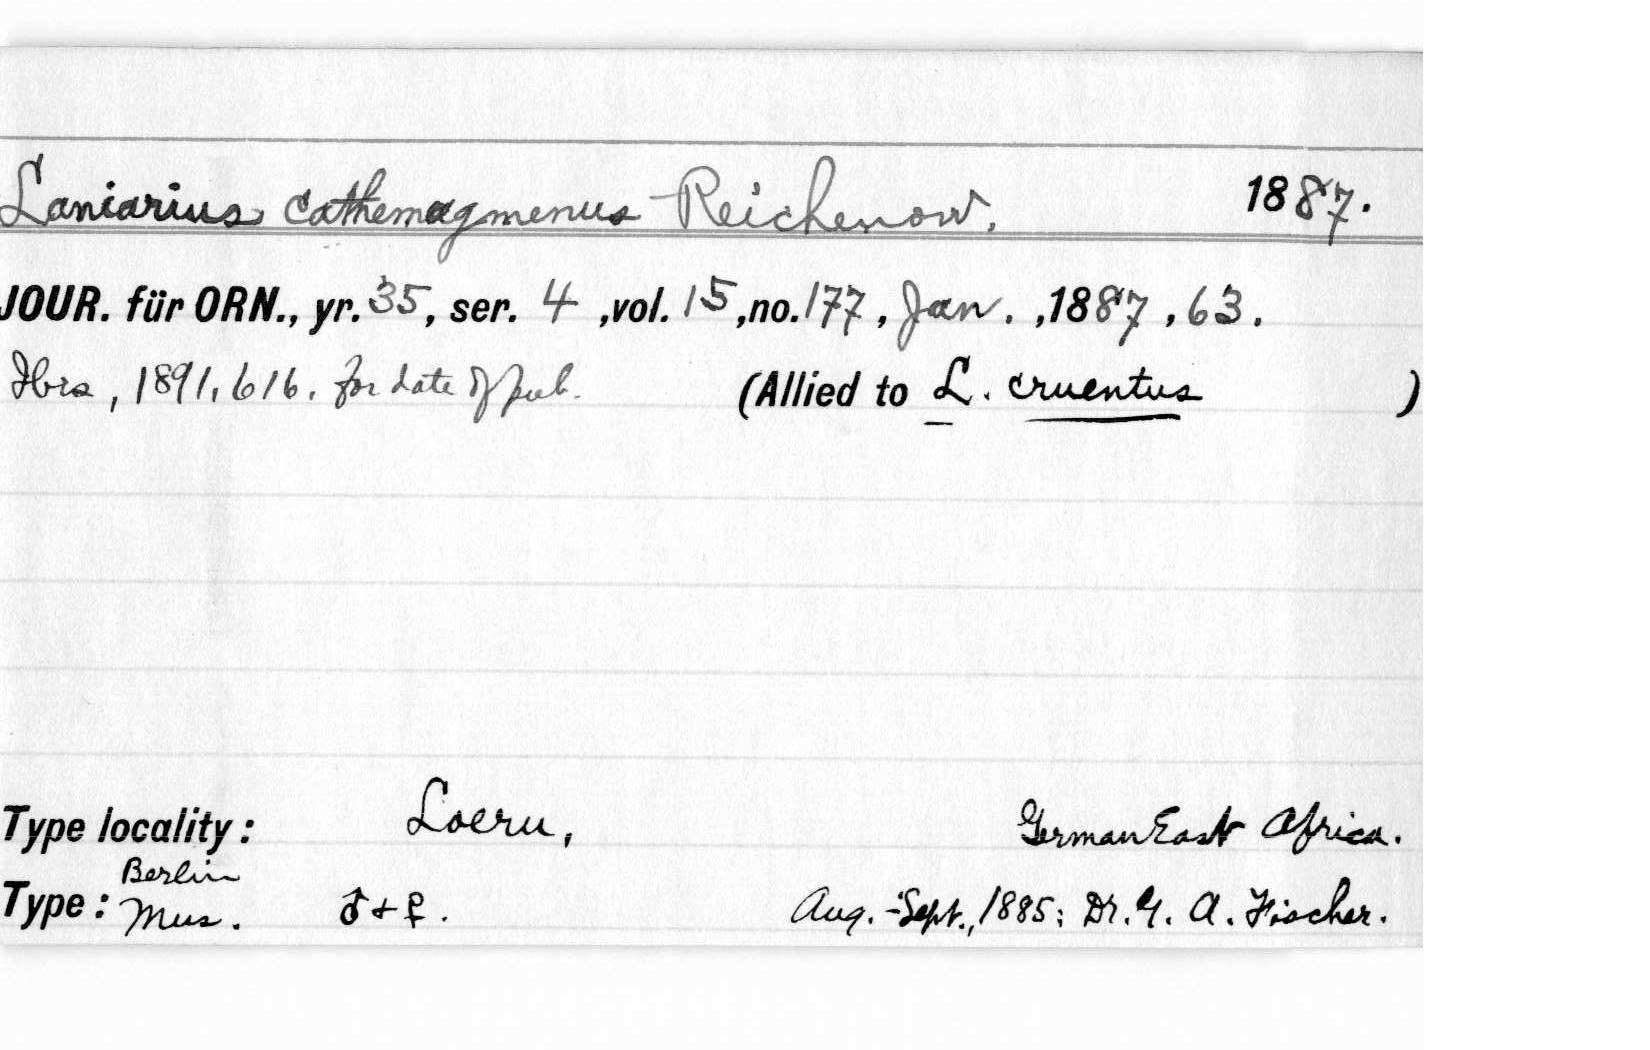 Laniarius cathemagmenus Reichenow. 1887.
JOUR. für ORN., yr. 35, ser. 4 ,vol. 15 ,no. 177 , Jan. ,1887 , 63.
Ibis, 1891, 616. for date of pub. (Allied to L. cruentus )
Type locality: Loeru, German East Africa.
Type: Berlin Mus. ♂ + ♀. Aug.-Sept., 1885; Dr. G. A. Fischer.